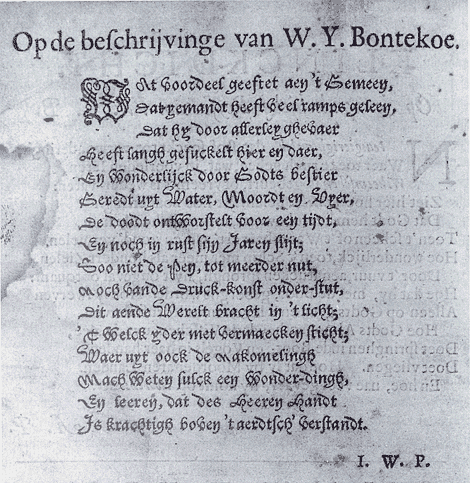 Op de beschrijvinge van W. Y. Bontekoe.
WAt voordeel geeftet aen 't Gemeen,
Dat yemandt heeft veel ramps geleen,
Dat hy door allerley ghevaer
Heeft langh gesuckelt hier en daer,
En wonderlijck door Godts bestier
Geredt uyt Water, Moordt en Vyer,
De doodt ontworstelt voor een tijdt,
En noch in rust sijn Jaren slijt;
Soo niet de Pen, tot meerder nut,
Noch vande Druck-konst onder-stut,
Dit aende Werelt bracht in 't licht;
'T Welck yder met vermaecken sticht;
Waer uyt oock de Nakomelingh
Mach weten sulck een Wonder-dingh,
En leeren, dat des Heeren Handt
Is krachtigh boven 't aerdtsch verstandt.
I. W. P.